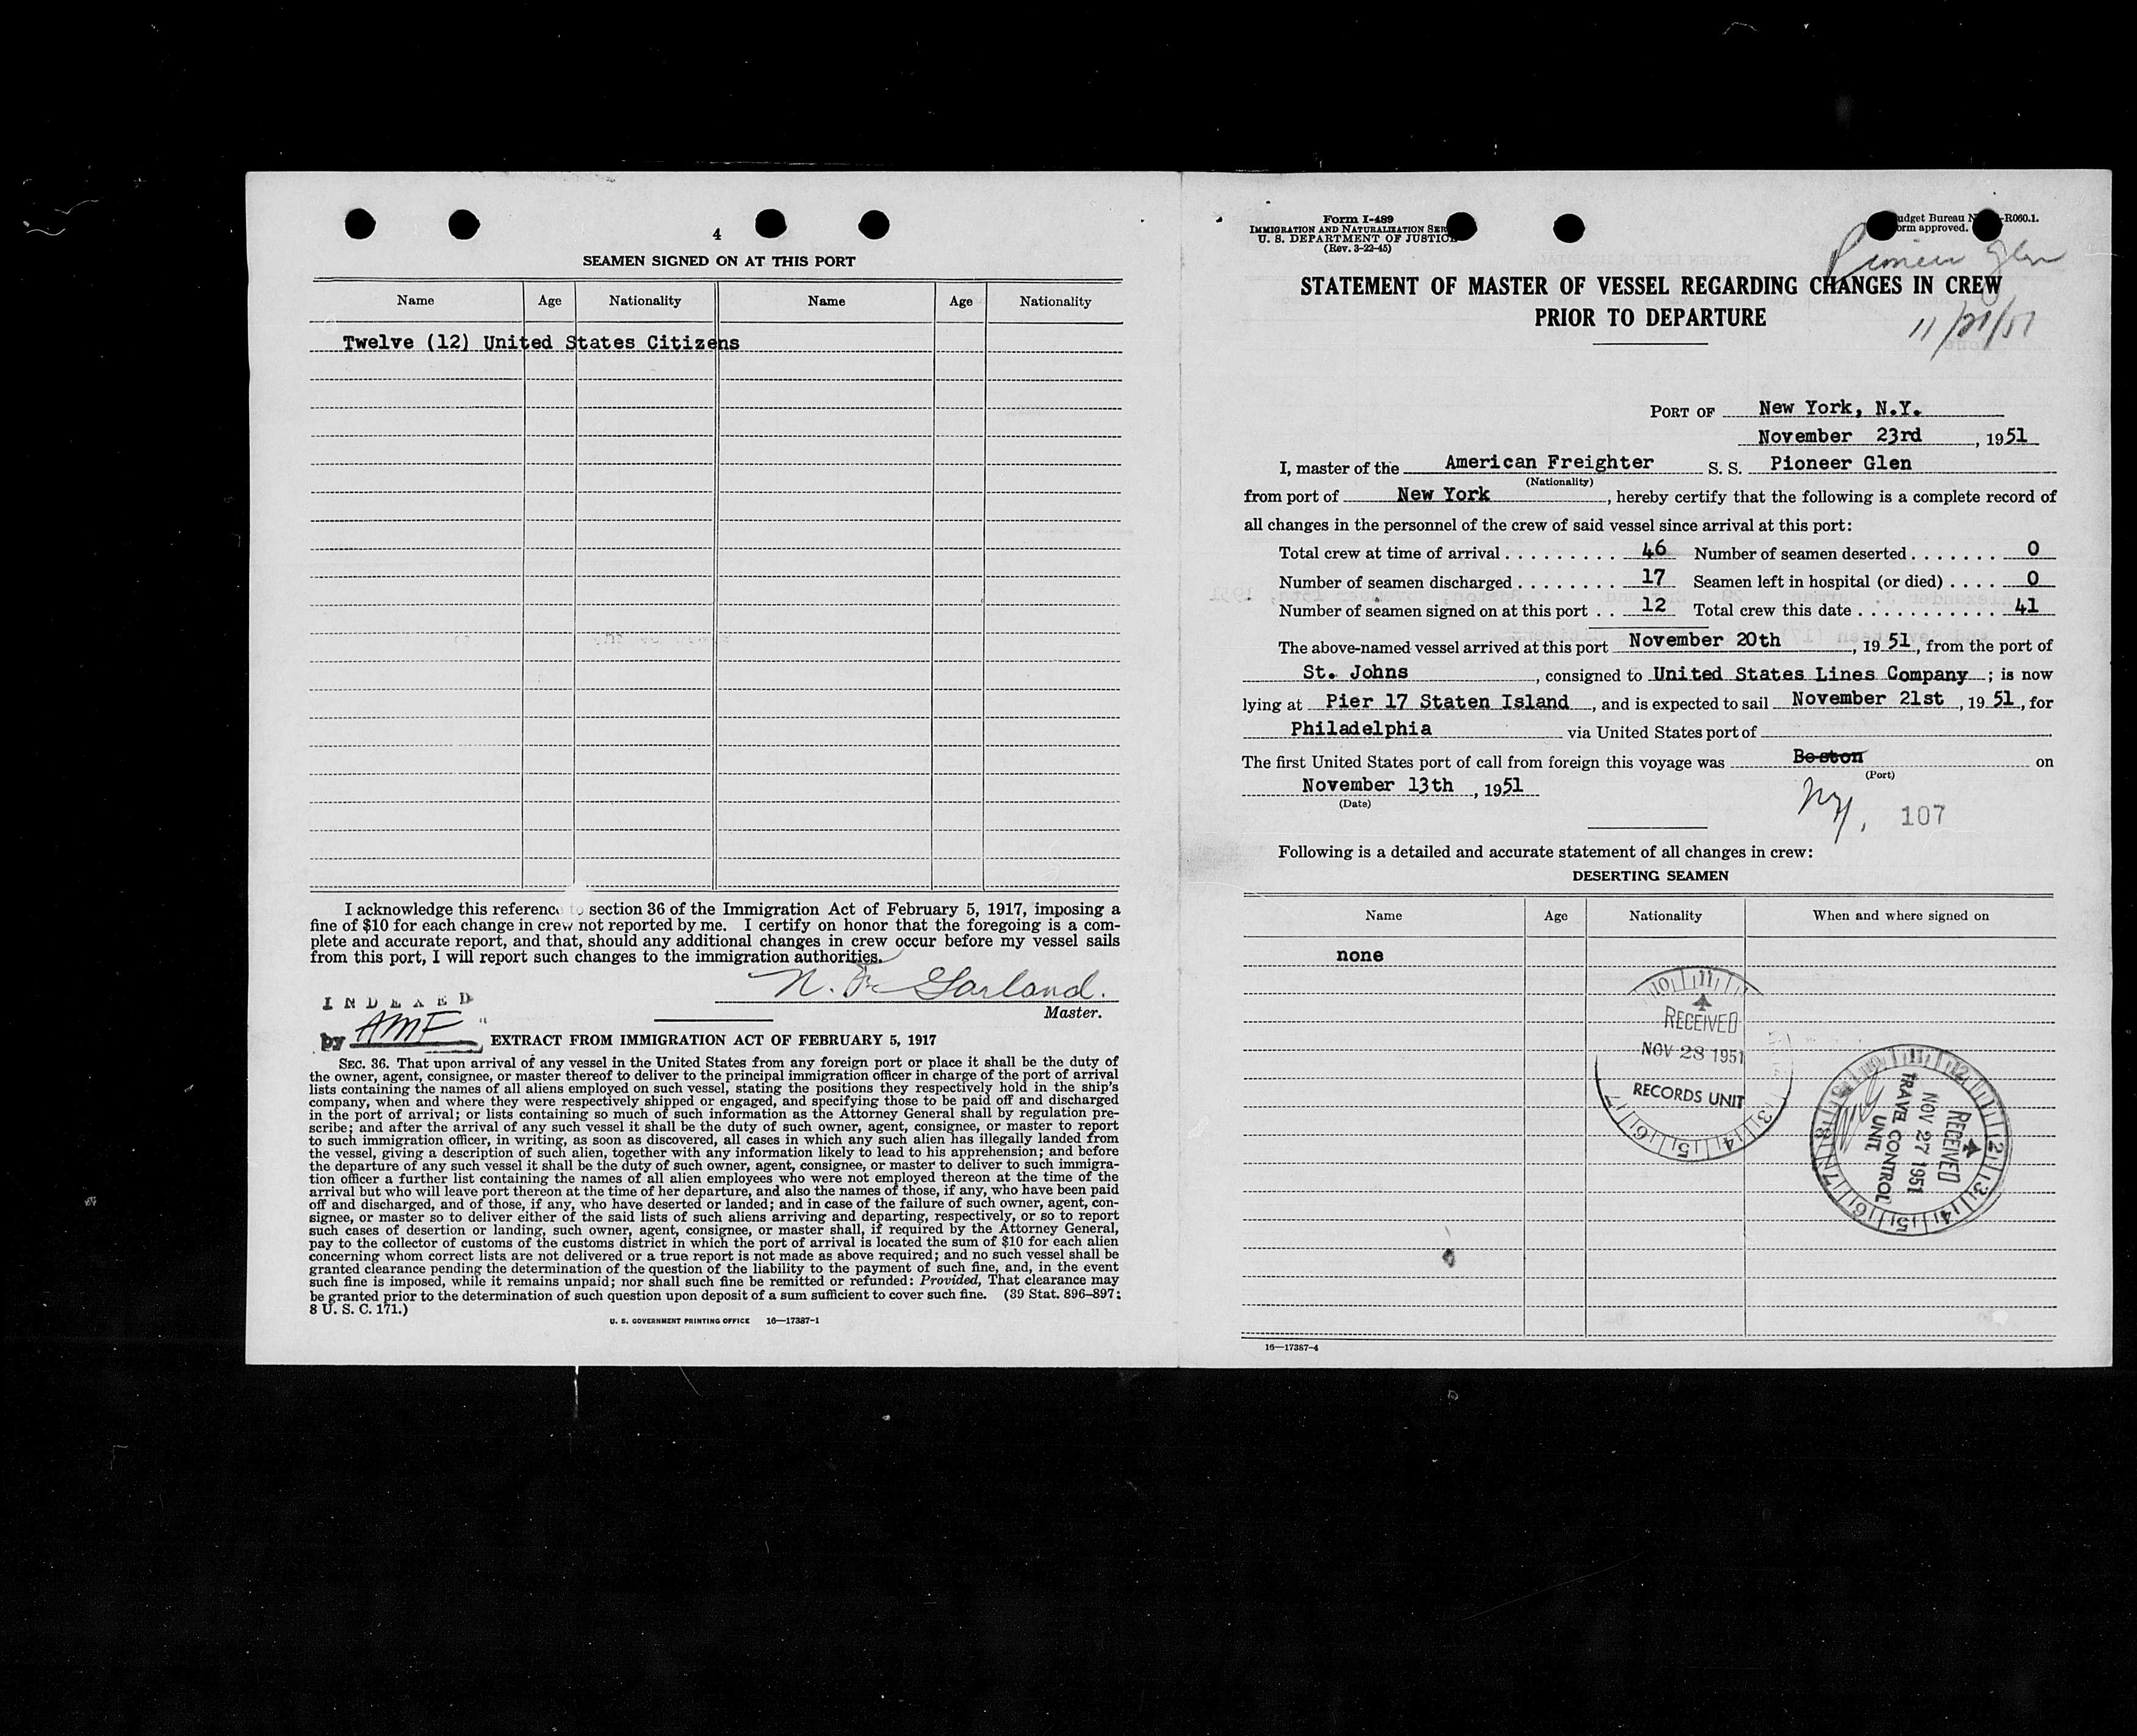 4
SEAMEN SIGNED ON AT THIS PORT
Name Age Nationality Name Age Nationality
Twelve (12) United States Citizens
I acknowledge this reference to section 36 of the Immigration Act of February 5, 1917, imposing a
fine of $10 for each change in crew not reported by me. I certify on honor that the foregoing is a com-
plete and accurate report, and that, should any additional changes in crew occur before my vessel sails
from this port, I will report such changes to the immigration authorities.
Garland.
Master.
INDEXED
by AMF
EXTRACT FROM IMMIGRATION ACT OF FEBRUARY 5, 1917
SEC. 36. That upon arrival of any vessel in the United States from any foreign port or place it shall be the duty of
the owner, agent, consignee, or master thereof to deliver to the principal immigration officer in charge of the port of arrival
lists containing the names of all aliens employed on such vessel, stating the positions they respectively hold in the ship's
company, when and where they were respectively shipped or engaged, and specifying those to be paid off and discharged
in the port of arrival; or lists containing so much of such information as the Attorney General shall by regulation pre-
scribe; and after the arrival of any such vessel it shall be the duty of such owner, agent, consignee, or master to report
to such immigration officer, in writing, as soon as discovered, all cases in which any such alien has illegally landed from
the vessel, giving a description of such alien, together with any information likely to lead to his apprehension; and before
the departure of any such vessel it shall be the duty of such owner, agent, consignee, or master to deliver to such immigra-
tion officer a further list containing the names of all alien employees who were not employed thereon at the time of the
arrival but who will leave port thereon at the time of her departure, and also the names of those, if any, who have been paid
off and discharged, and of those, if any, who have deserted or landed; and in case of the failure of such owner, agent, con-
signee, or master so to deliver either of the said lists of such aliens arriving and departing, respectively, or so to report
such cases of desertion or landing, such owner, agent, consignee, or master shall, if required by the Attorney General,
pay to the collector of customs of the customs district in which the port of arrival is located the sum of $10 for each alien
concerning whom correct lists are not delivered or a true report is not made as above required; and no such vessel shall be
granted clearance pending the determination of the question of the liability to the payment of such fine, and, in the event
such fine is imposed, while it remains unpaid; nor shall such fine be remitted or refunded: Provided, That clearance may
be granted prior to the determination of such question upon deposit of a sum sufficient to cover such fine. (39 Stat. 896–897;
8 U. S. C. 171.)
U. S. GOVERNMENT PRINTING OFFICE 16—17387-1
Form I-489
IMMIGRATION AND NATURALIZATION SER
U. S. DEPARTMENT OF JUSTICE
(Rev. 3-22-45)
udget Bureau N -R060.1.
orm approved.
Pioneer Glen
STATEMENT OF MASTER OF VESSEL REGARDING CHANGES IN CREW
PRIOR TO DEPARTURE
11/21/51
PORT OF New York, N.Y.
November 23rd, 1951
I, master of the American Freighter S. S. Pioneer Glen
(Nationality)
from port of New York, hereby certify that the following is a complete record of
all changes in the personnel of the crew of said vessel since arrival at this port:
Total crew at time of arrival . . . . . . . . . 46 Number of seamen deserted . . . . . . . 0
Number of seamen discharged . . . . . . . . 17 Seamen left in hospital (or died) . . . . 0
Number of seamen signed on at this port . . 12 Total crew this date . . . . . . . . . . . . 41
The above-named vessel arrived at this port November 20th, 1951, from the port of
St. Johns, consigned to United States Lines Company; is now
lying at Pier 17 Staten Island, and is expected to sail November 21st, 1951, for
Philadelphia via United States port of
The first United States port of call from foreign this voyage was Boston on
(Port)
November 13th, 1951
(Date)
NY, 107
Following is a detailed and accurate statement of all changes in crew:
DESERTING SEAMEN
Name Age Nationality When and where signed on
none
RECEIVED
NOV 28 1951
RECORDS UNIT
RECEIVED
NOV 27 1951
TRAVEL CONTROL
UNIT
16—17387-4